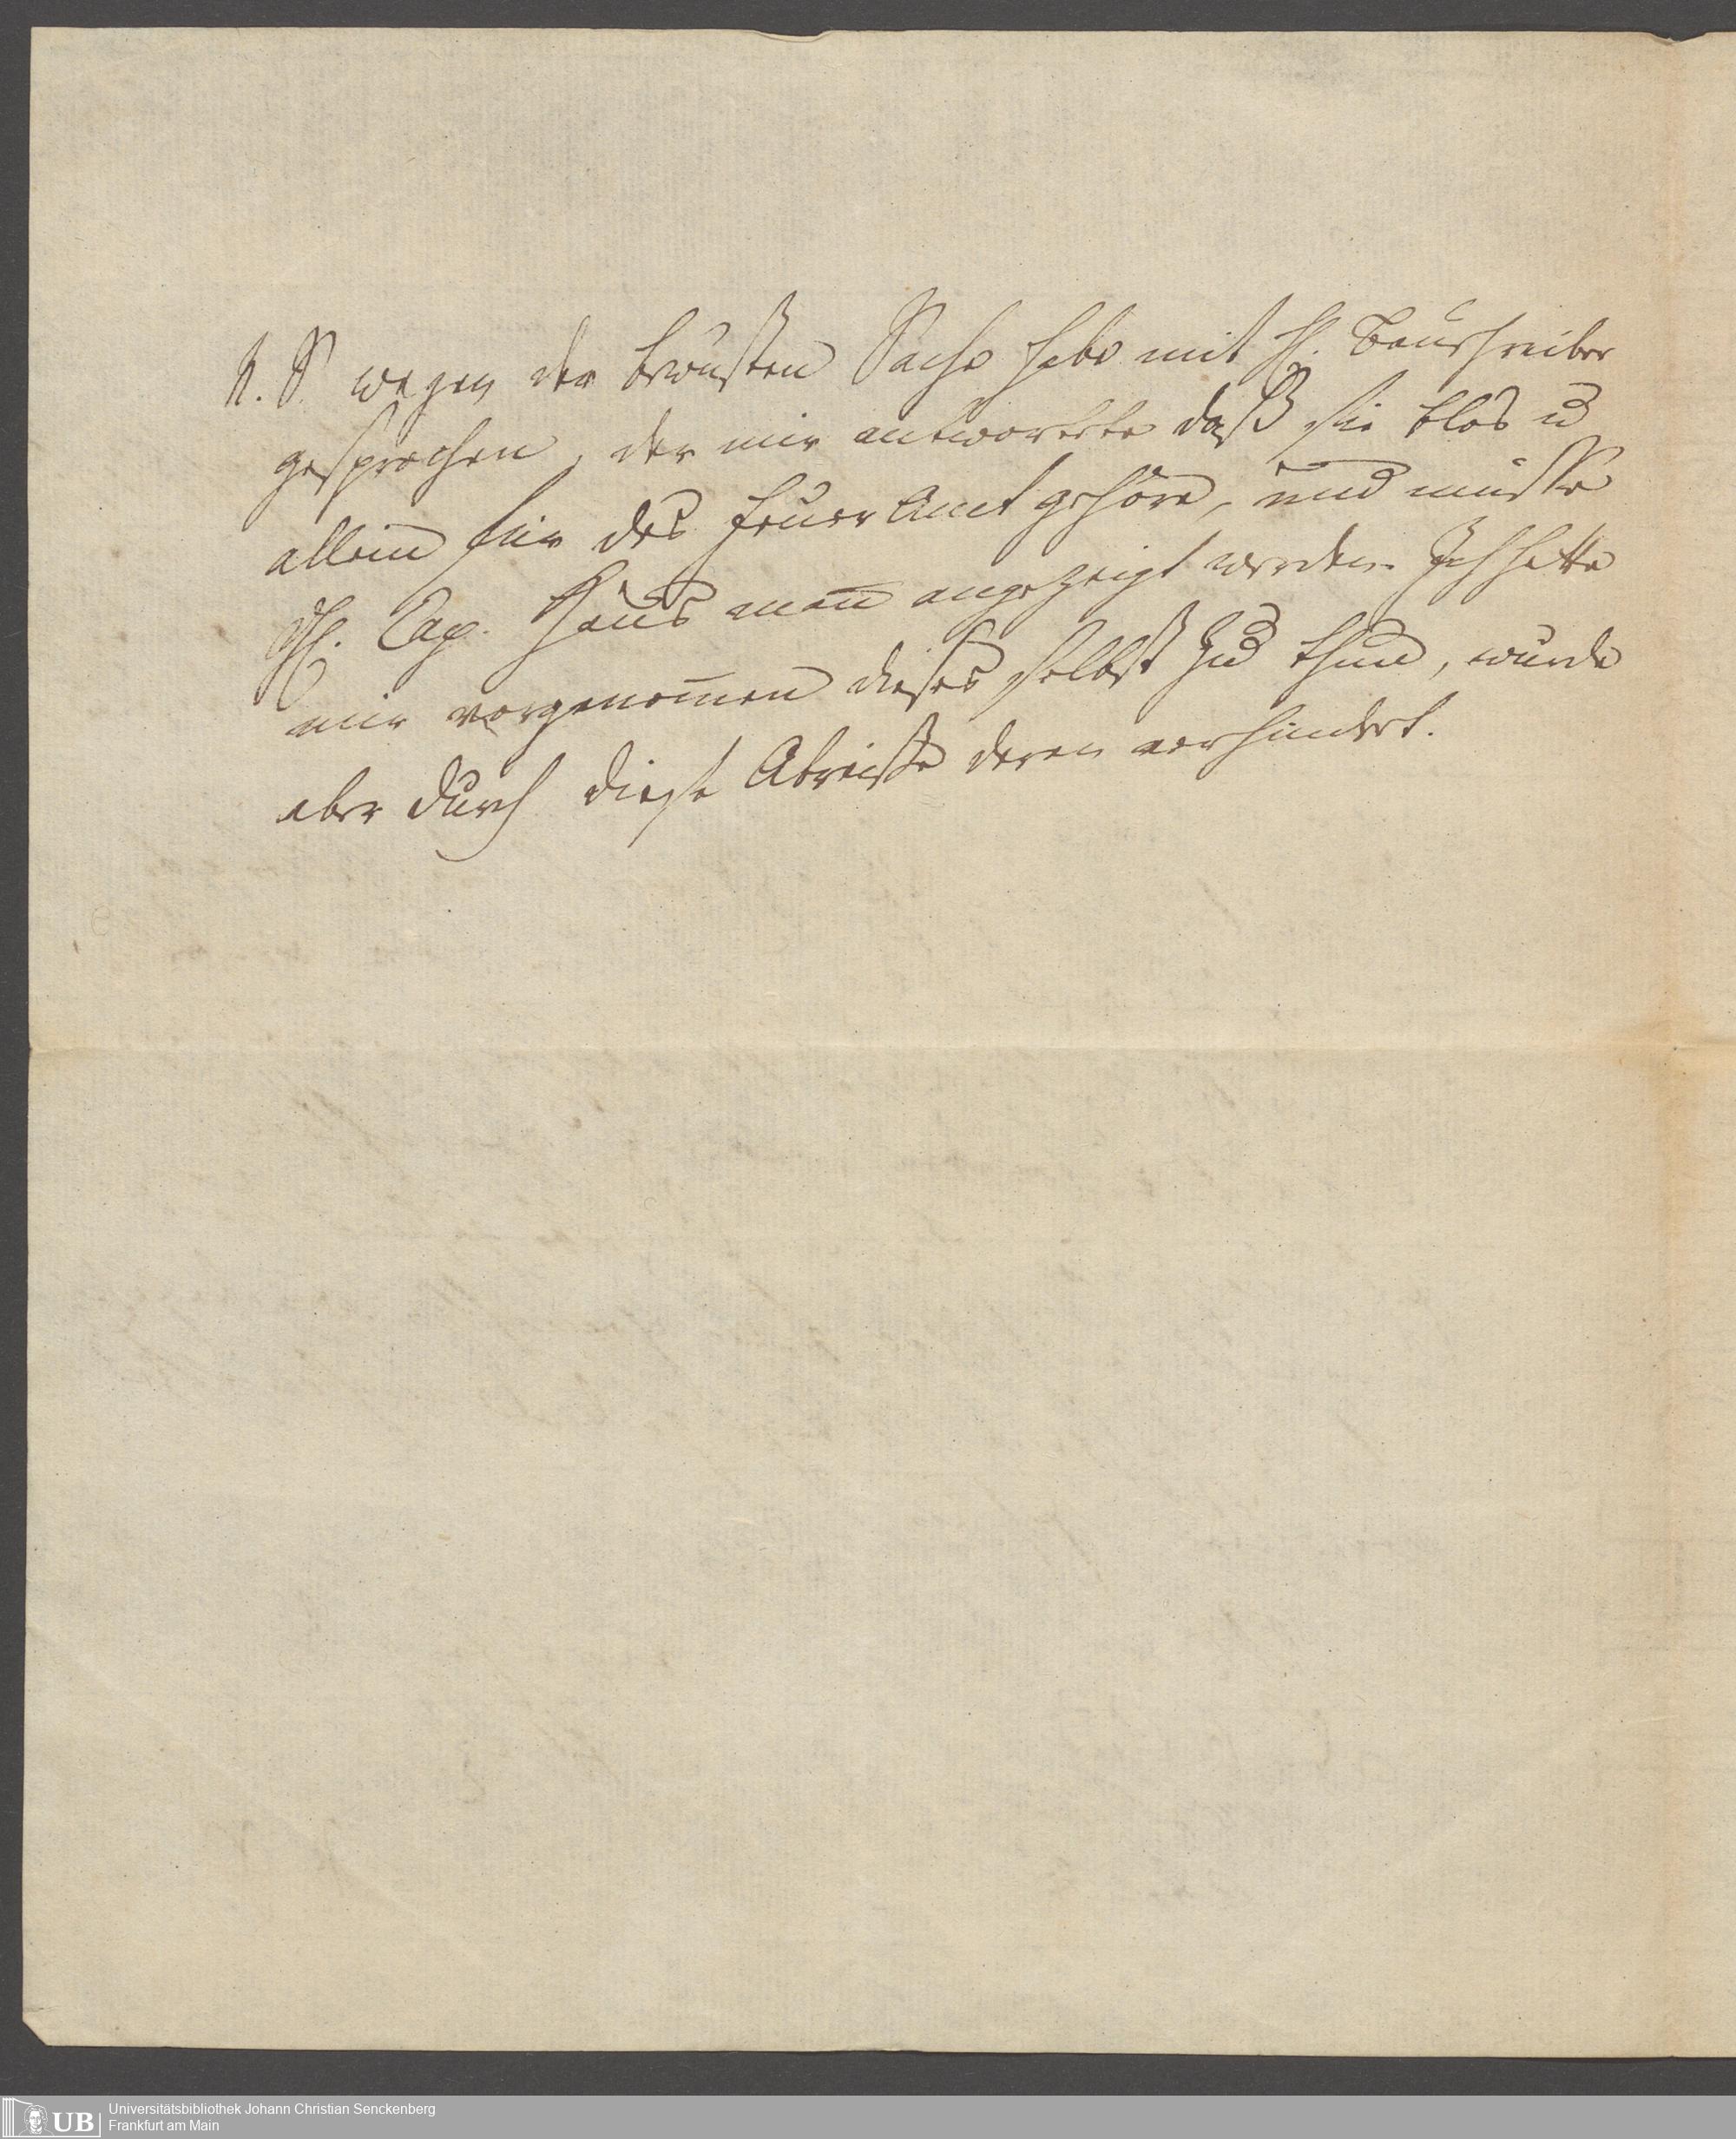 N. S. wegen der bewusten Sache habe mit H. Bauschreiber
gesprochen, der mir antwortete daß sie blos u
allein für das Feuer Amt gehöre, und müsste
H. Cap. Hausmañ angezeigt werden. Ich hatte
mir vorgenom̄en dieses selbst zu thun, wurde
aber durch diese Abreise daran verhindert.
UB Universitätsbibliothek Johann Christian Senckenberg
Frankfurt am Main